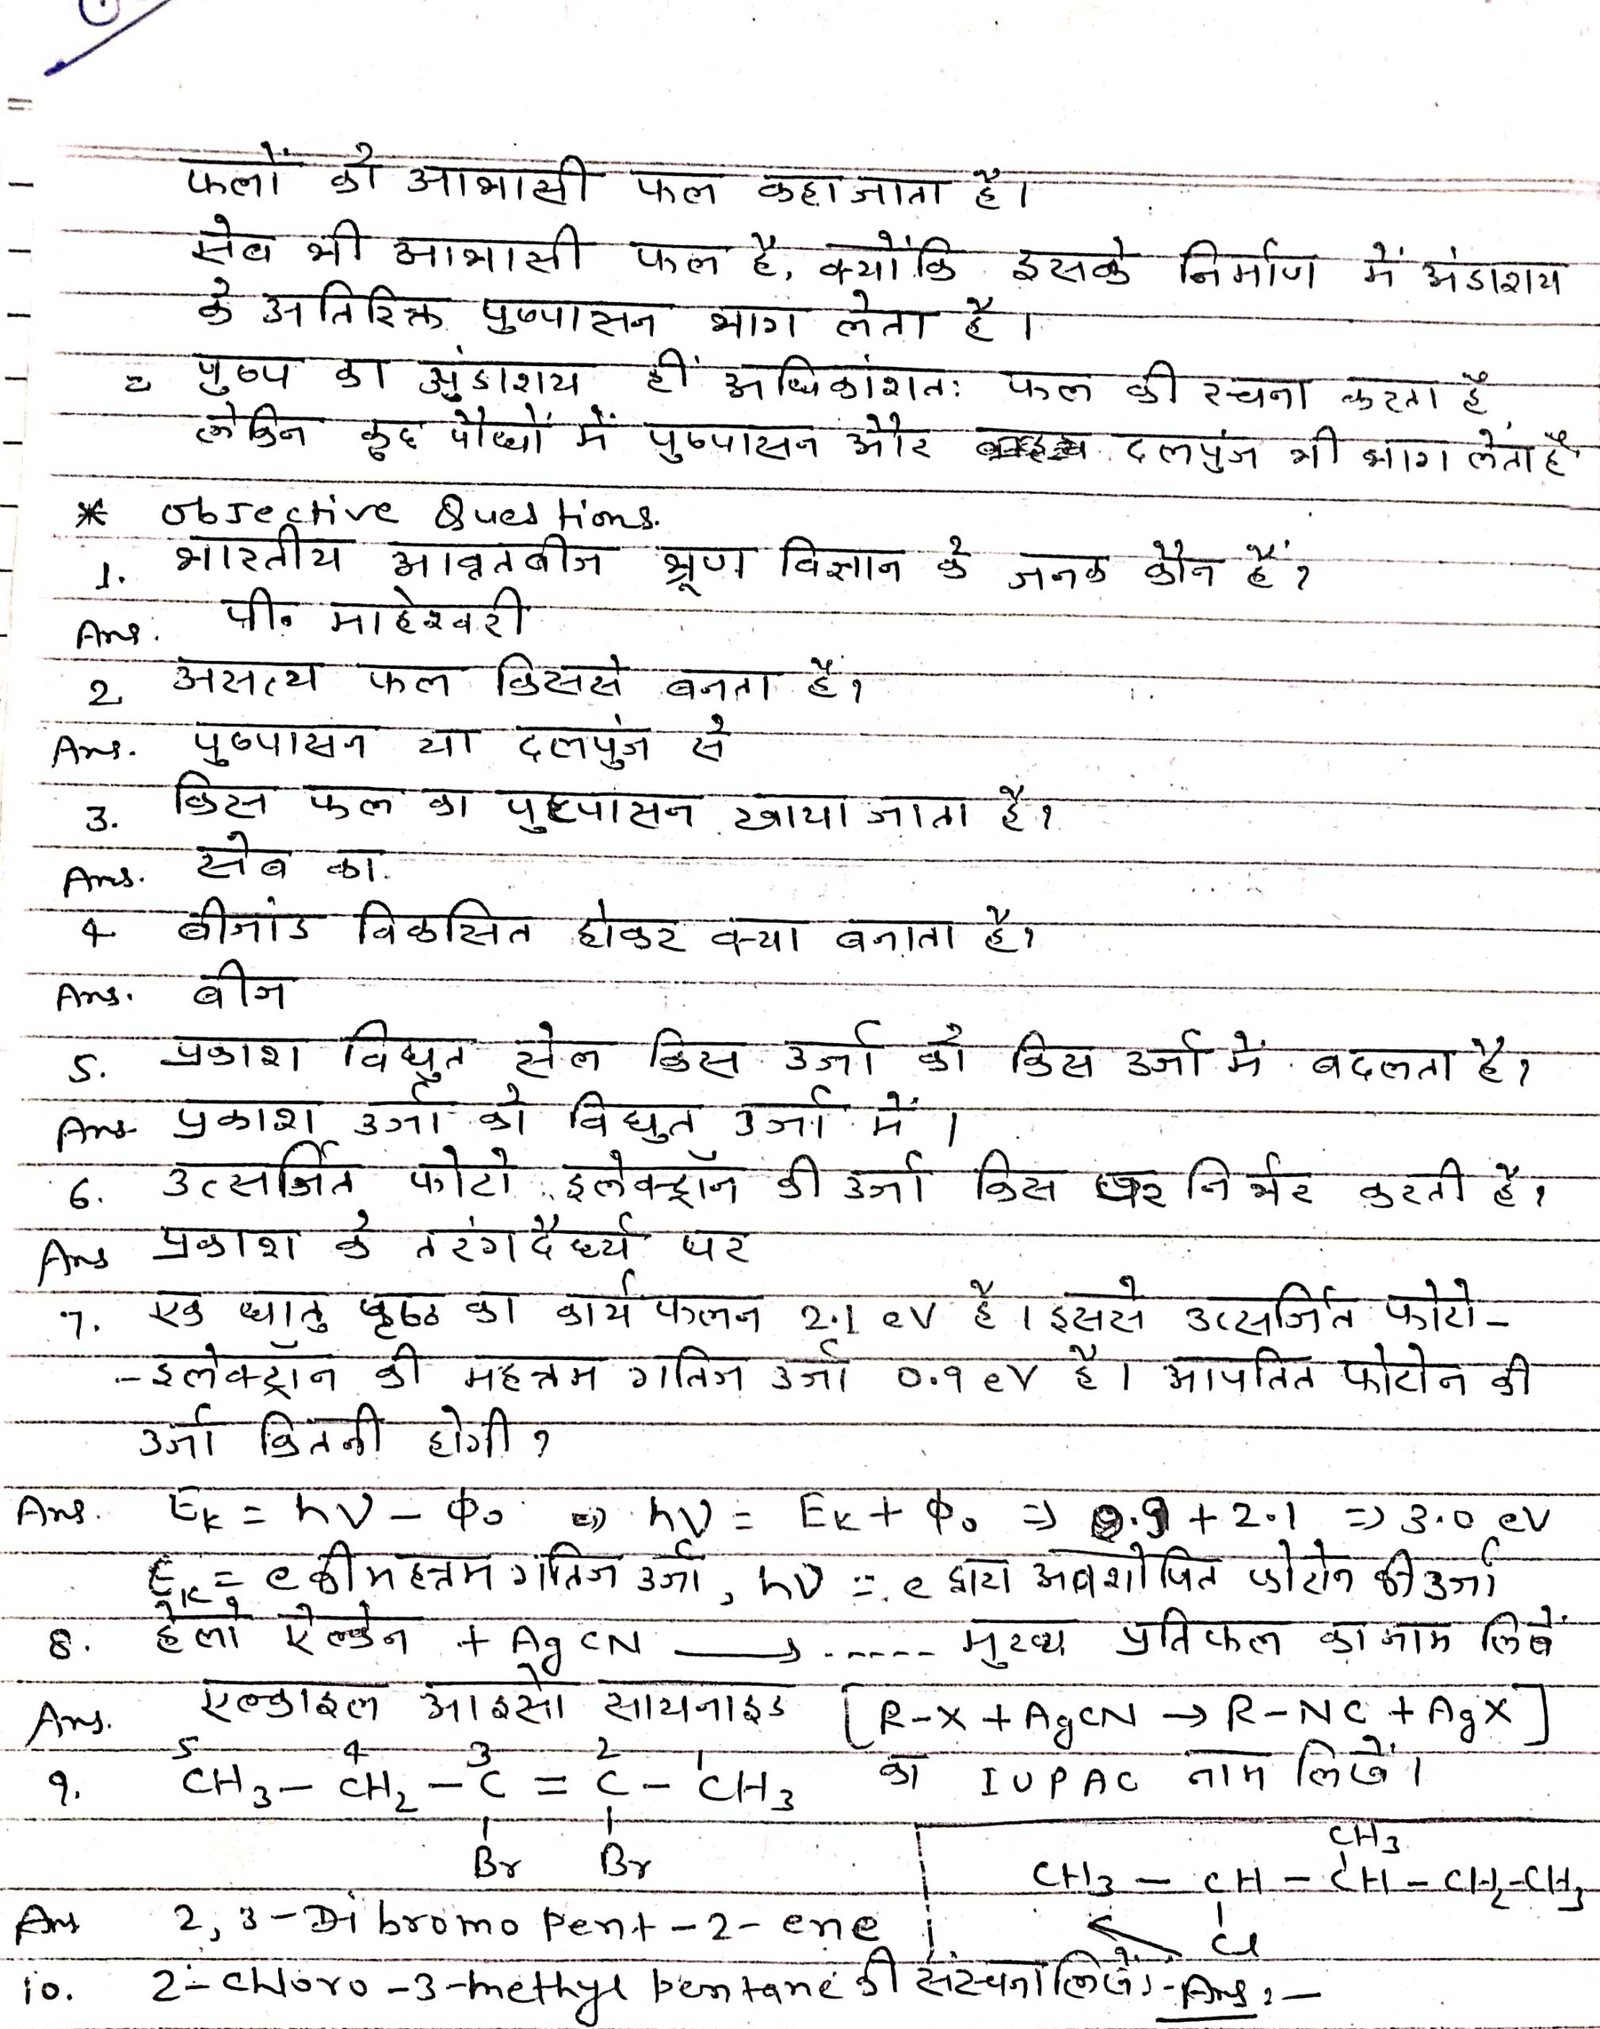 फलों को आभासी फल कहा जाता है।
सेव भी आभासी फल है, क्योंकि इसके निर्माण में अंडाशय
के अतिरिक्त पुष्पासन भाग लेता है।
= पुष्प का अंडाशय हीं अधिकांशतः फल की रचना करता है
लेकिन कुछ पौधों में पुष्पासन और दलपुंज भी भाग लेता है
* Objective Questions.
1. भारतीय आवृतबीज भ्रूण विज्ञान के जनक कौन हैं?
Ans. पी॰ माहेश्वरी
2 असत्य फल किससे बनता है?
Ans. पुष्पासन या दलपुंज से
3. किस फल का पुष्पासन खाया जाता है?
Ans. सेब का
4 बीजांड विकसित होकर क्या बनाता है?
Ans. बीज
5. प्रकाश विधुत सेल किस उर्जा को किस उर्जा में बदलता है?
Ans प्रकाश उर्जा को विधुत उर्जा में।
6. उत्सर्जित फोटो इलेक्ट्रॉन की उर्जा किस पर निर्भर करती है?
Ans प्रकाश के तरंगदैर्ध्य पर
7. एक धातु पृष्ठ का कार्य फलन 2.1 eV है। इससे उत्सर्जित फोटो-
-इलेक्ट्रॉन की महत्तम गतिज उर्जा 0.9 eV है। आपतित फोटोन की
उर्जा कितनी होगी?
Ans. Eₖ = hν - Φ₀ ⇒ hν = Eₖ + Φ₀ ⇒ 0.9 + 2.1 ⇒ 3.0 eV
Eₖ = e की महत्तम गतिज उर्जा, hν = e द्वारा अवशोषित फोटोन की उर्जा
8. हैलो ऐल्केन + AgCN ⟶ ----- मुख्य प्रतिफल का नाम लिखें
Ans. एल्काइल आइसो सायनाइड [R-X + AgCN → R-NC + AgX]
5 4 3 2 1
9. CH₃ - CH₂ - C = C - CH₃ का IUPAC नाम लिखें।
Br Br
CH₃
CH₃ - CH - CH - CH₂-CH₃
Cl
Ans 2, 3-Dibromo pent-2-ene
10. 2-chloro-3-methyl pentane की संरचना लिखें।-Ans:-